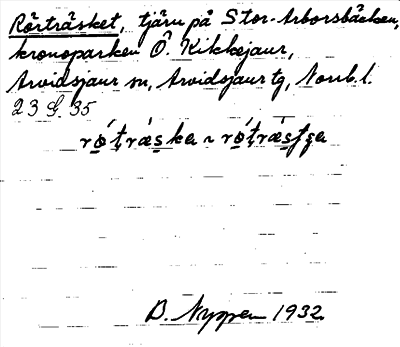 Rörträsket, tjärn på Stor-Arborsbäcken,
kronoparken Ö. Kikkejaur,
Arvidsjaur sn, Arvidsjaur tg, Norrb. l.
23 I. 35
rótræska ~ rótræsʃʒa
D. Nyppen 1932